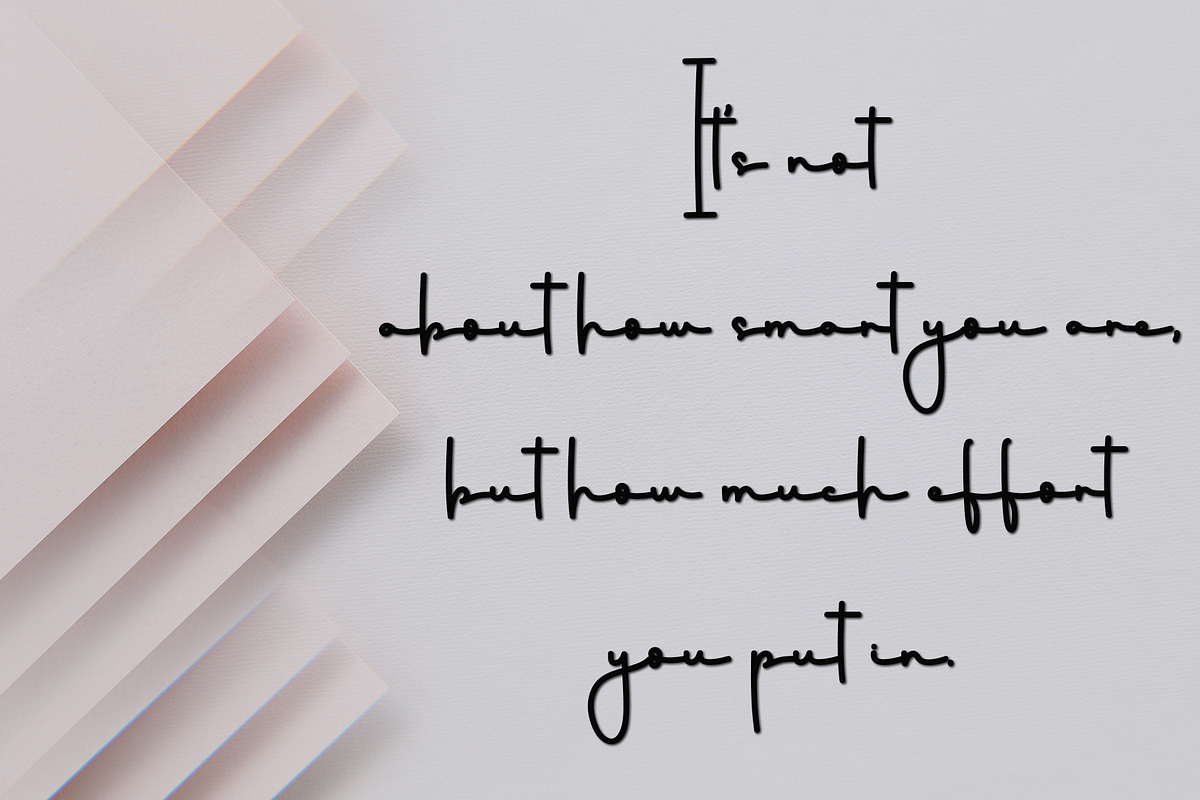 It's not
about how smart you are,
but how much effort
you put in.